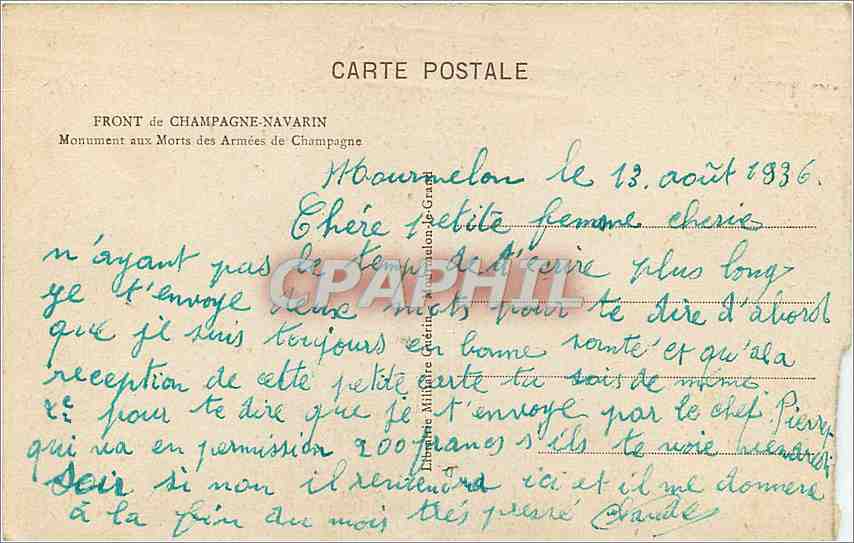 CARTE POSTALE
FRONT de CHAMPAGNE-NAVARIN
Monument aux Morts des Armées de Champagne
Mourmelon le 13. août 1936.
Chére petite femme cherie
n'ayant pas le temp de t'ecrire plus long
je t'envoye deux mots pour te dire d'abord
que je suis toujours en bonne santé et qu'a la
reception de cette petite carte tu sois de même
2e pour te dire que je t'envoye par le chef Pierre
qui va en permission 200 francs s'ils te voie vendredi
soir si non il reviendra ici et il me donnera
à la fin du mois trés pressé
Librairie Militaire Guérin, Mourmelon-le-Grand
CPAPHIL
.com